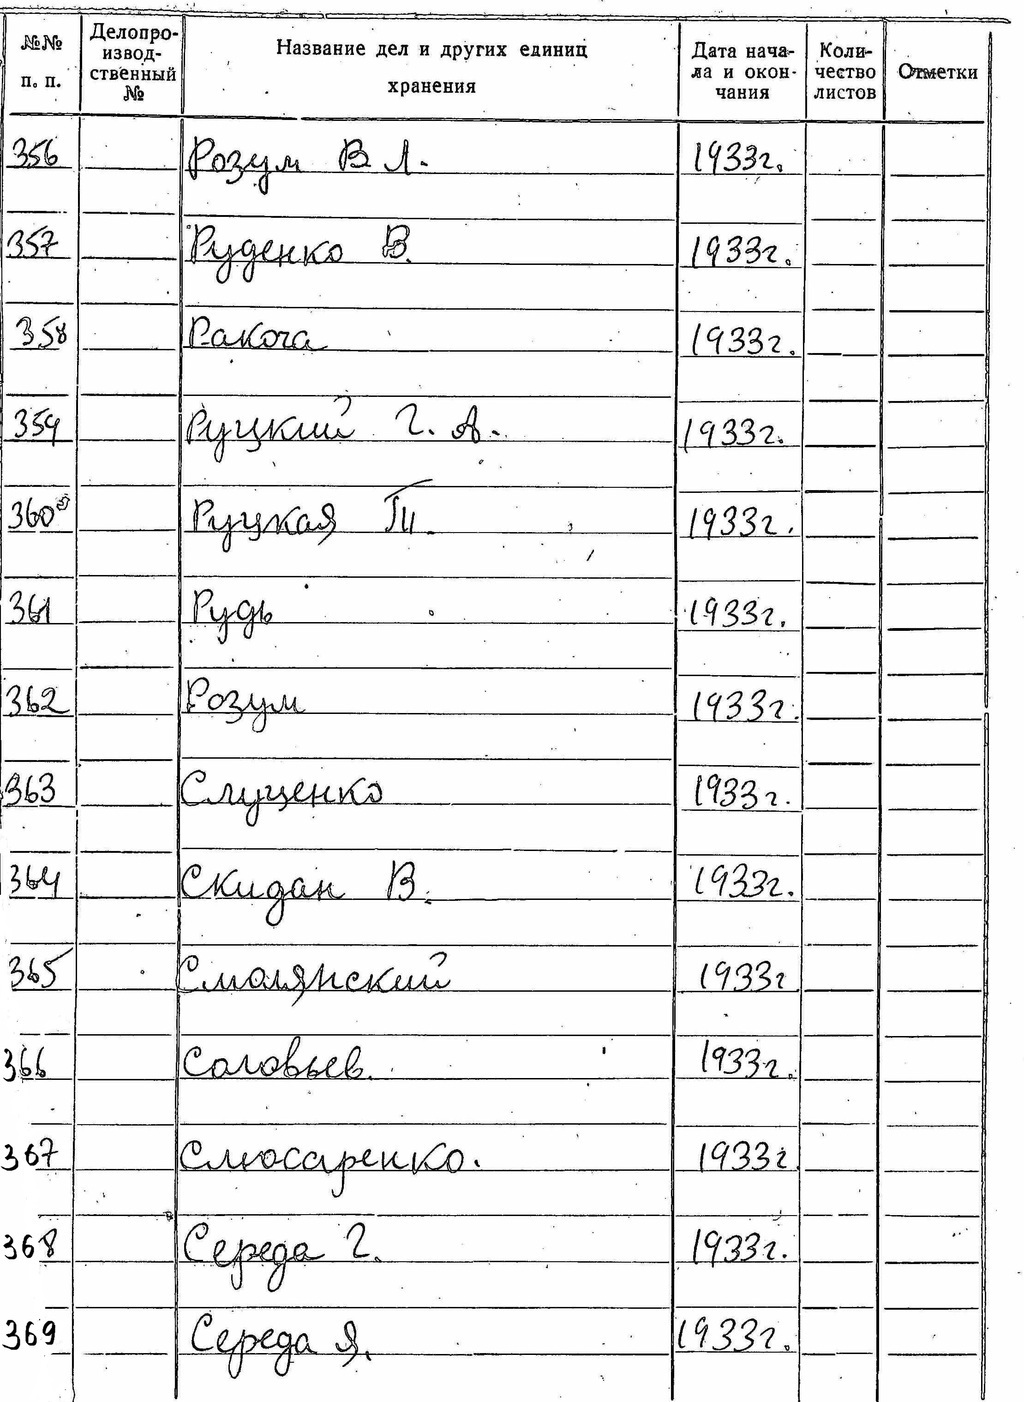 №№ п. п. Делопро-изводственный № Название дел и других единиц хранения Дата начала и окончания Количество листов Отметки
356 Розум В Л. 1933г.
357 Руденко В. 1933г.
358 Ракоча 1933г.
359 Руцкий Г. А. 1933г.
360 Руцкая П. 1933г.
361 Рудь 1933г.
362 Розум 1933г.
363 Слуценко 1933г.
364 Скидан В. 1933г.
365 Смолянский 1933г
366 Соловьев. 1933г.
367 Слюсаренко. 1933г
368 Середа Г. 1933г.
369 Середа Я. 1933г.